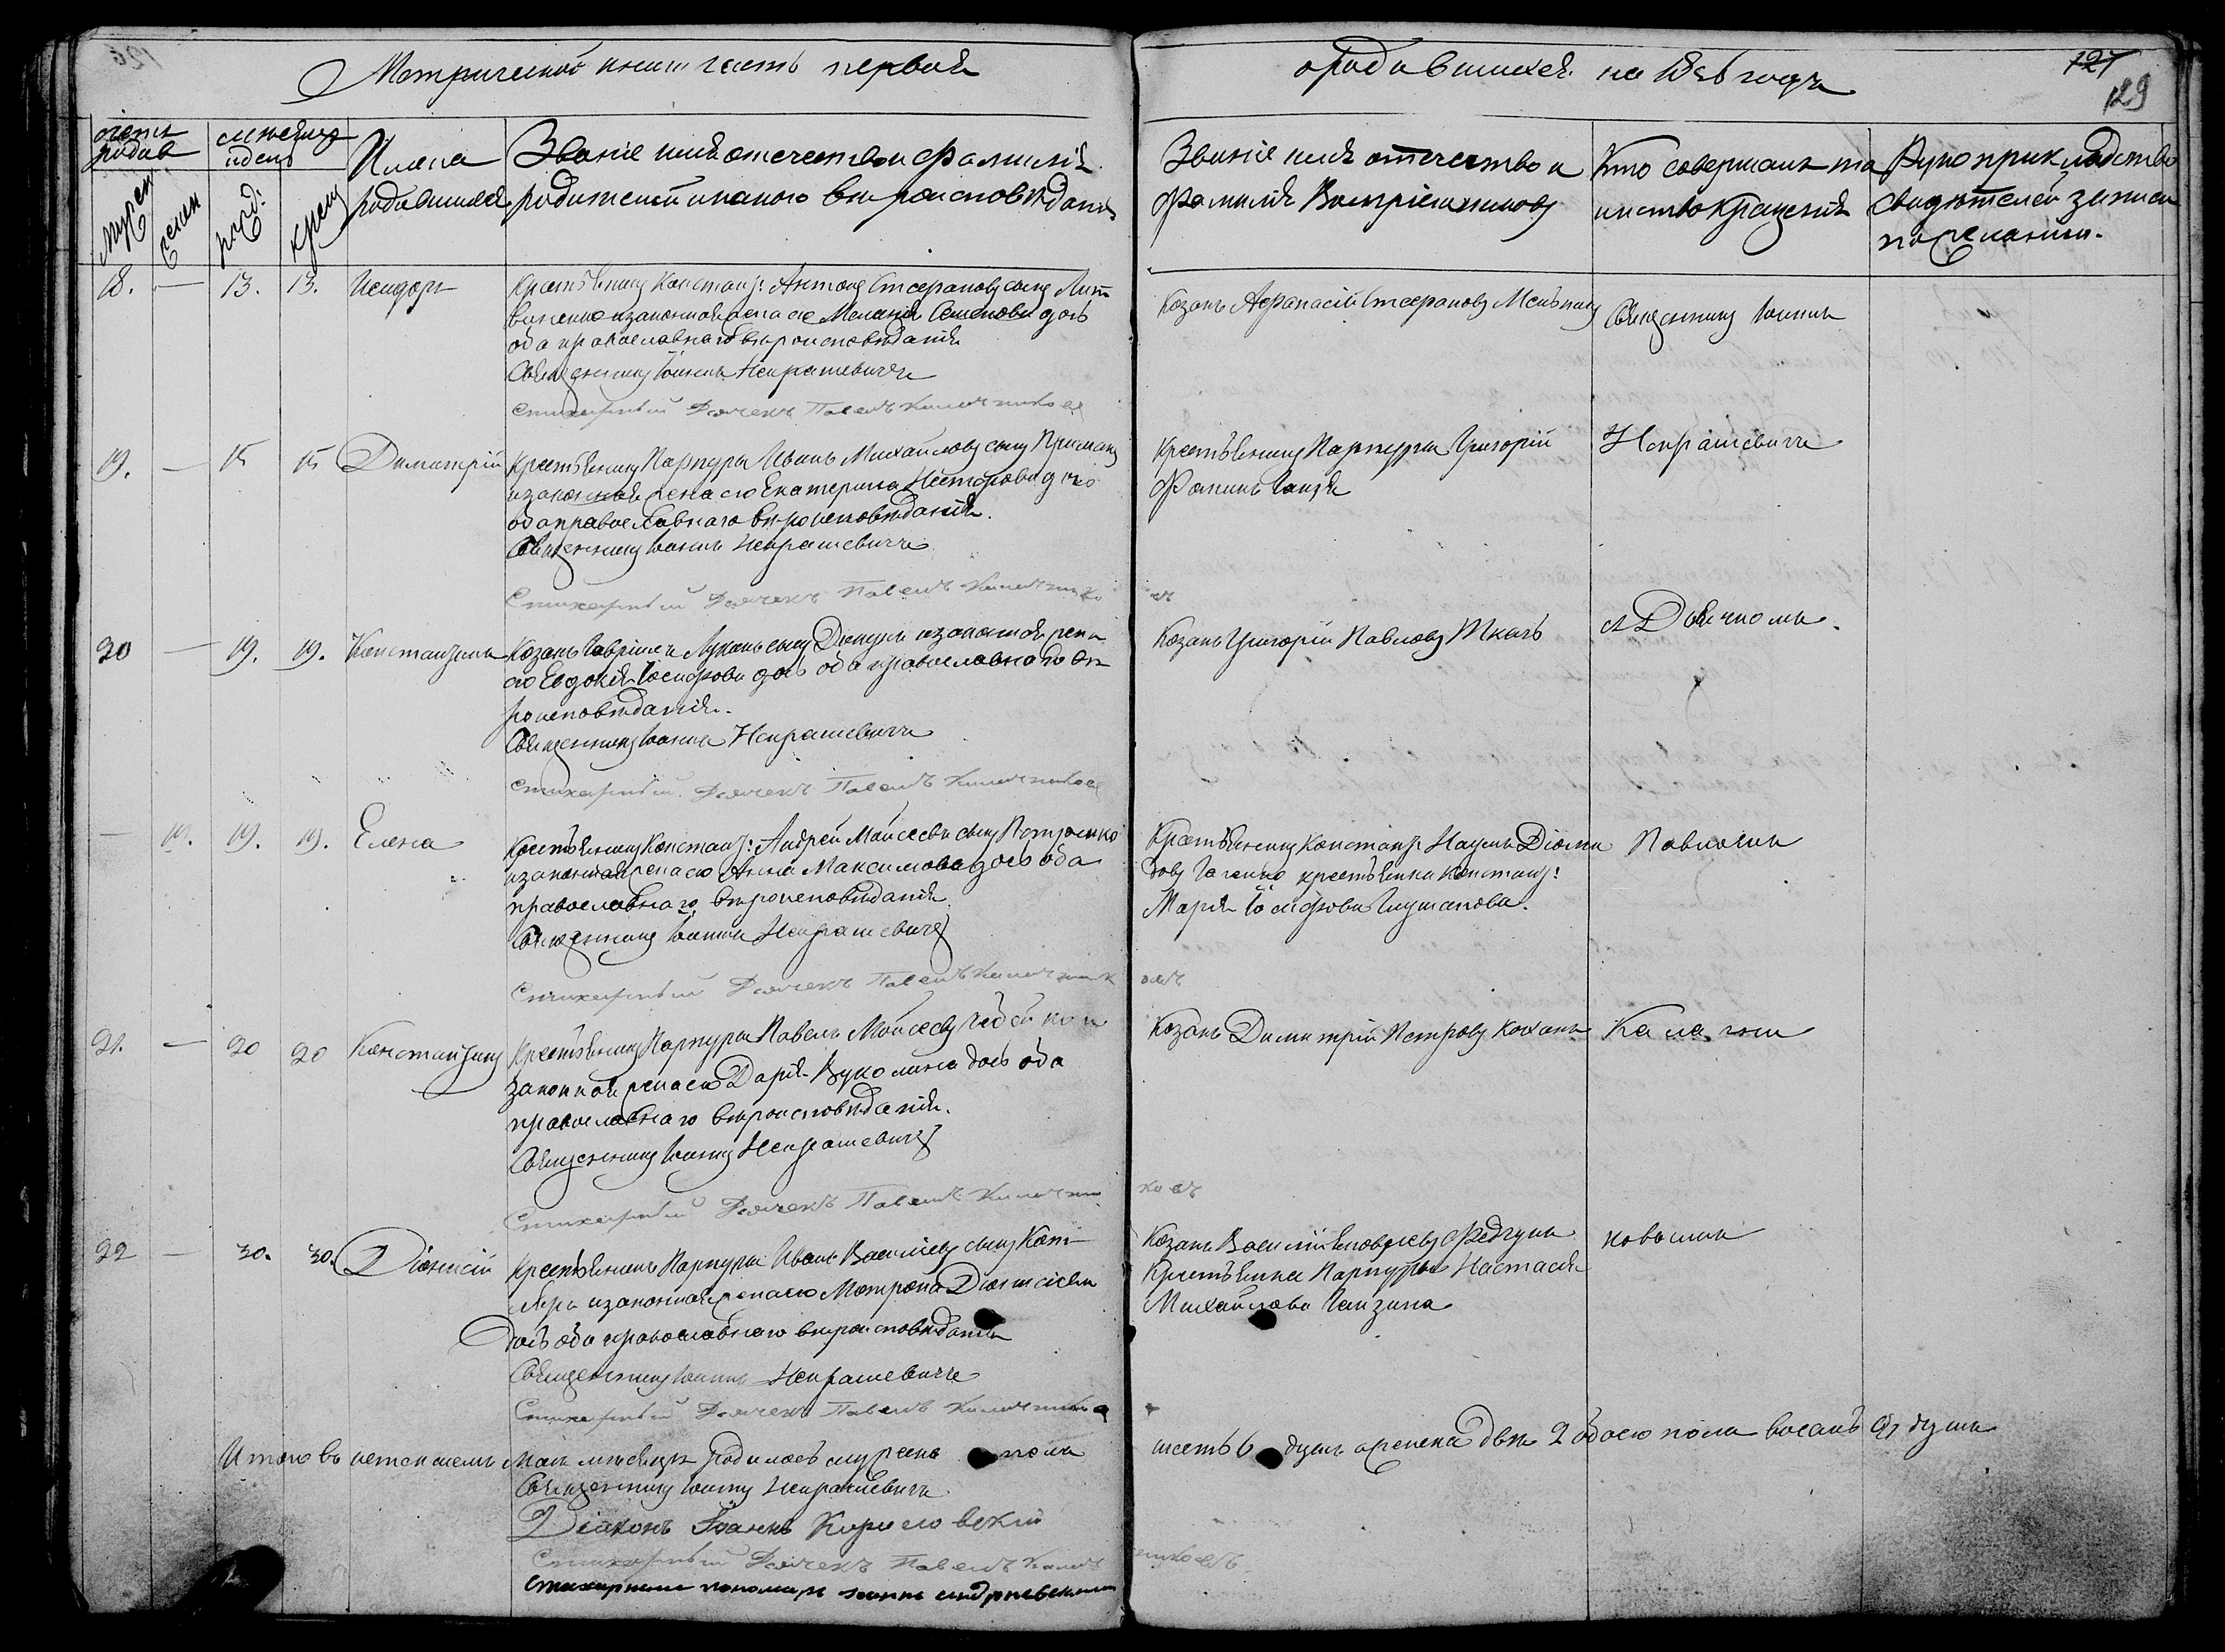 Метрической книги часть первая
о родившихся на 1856 годъ
127
129
счетъ родив
мѣсяцъ и день
Имена родившихся
Званіе имя отечество и фамилія
родителей и какого вѣроисповѣданія
Званіе имя отечество и
фамилія Воспріемниковъ
Кто совершалъ та
инство крещенія
Рукоприкладство
свидѣтелей записи
по желанію.
мужеск:
женск
рожд:
крещ
18. — 13. 13. Исидоръ
Крестьянинъ Констант: Антонъ Стефановъ сынъ Лит
виненко и законная жена его Меланія Семенова дочь
оба православнаго вѣроисповѣданія
Священникъ Іоаннъ Некрашевичъ
Стихарный Дьячекъ Павелъ Калашниковъ
Козакъ Афанасій Стефановъ
Священникъ Іоаннъ
19. — 15 15 Димитрій
Крестьянинъ Парпуры Иванъ Михайловъ сынъ
и законная жена его Екатерина Несторова дочь
оба православнаго вѣроисповѣданія.
Священникъ Іоаннъ Некрашевичъ
Стихарный Дьячекъ Павелъ Калашниковъ
Крестьянинъ Парпуры Григорій
Фоминъ Ганзя
Некрашевичъ
20 — 19. 19. Константинъ
Козакъ Гавріилъ Лукинъ сынъ и законная жена
его Евдокія Іосифова дочь оба православнаго вѣ
роисповѣданія.
Священникъ Іоаннъ Некрашевичъ
Стихарный Дьячекъ Павелъ Калашниковъ
Козакъ Григорій Павловъ Ткачъ
съ Дьячкомъ.
— 19. 19. Елена
Крестьянинъ Констант: Андрей Моисеевъ сынъ Петренко
и законная жена его Анна Максимова дочь оба
православнаго вѣроисповѣданія
Священникъ Іоаннъ Некрашевичъ
Стихарный Дьячекъ Павелъ Калашниковъ
Крестьянинъ Констант: Наумъ Діоми
довъ крестьянка Констант:
Марія Іосифова
Павломъ
21. — 20 20 Константинъ
Крестьянинъ Парпуры Павелъ Моисеевъ и
законная жена его Дарія Вуколина дочь оба
православнаго вѣроисповѣданія.
Священникъ Іоаннъ Некрашевичъ
Стихарный Дьячекъ Павелъ Калашниковъ
Козакъ Димитрій Петровъ
Калаш
22 — 30. 30. Діонисій
Крестьянинъ Парпуры Иванъ Васильевъ сынъ Кот
ляръ и законная жена его Матрона Діонисіева
дочь оба православнаго вѣроисповѣданія
Священникъ Іоаннъ Некрашевичъ
Стихарный Дьячекъ Павелъ Калашниковъ
Козакъ Василій Федчунъ
Крестьянка Парпуры Настасія
Михайлова Ганзина
никовымъ
Итого въ истекшемъ Маѣ мѣсяцѣ родилось мужеска пола
шесть 6 душъ а женска двѣ 2 обоего пола восемь душъ
Священникъ Іоаннъ Некрашевичъ
Діаконъ Іоаннъ
Стихарный Дьячекъ Павелъ Калашниковъ
Стихарный пономарь Іоаннъ